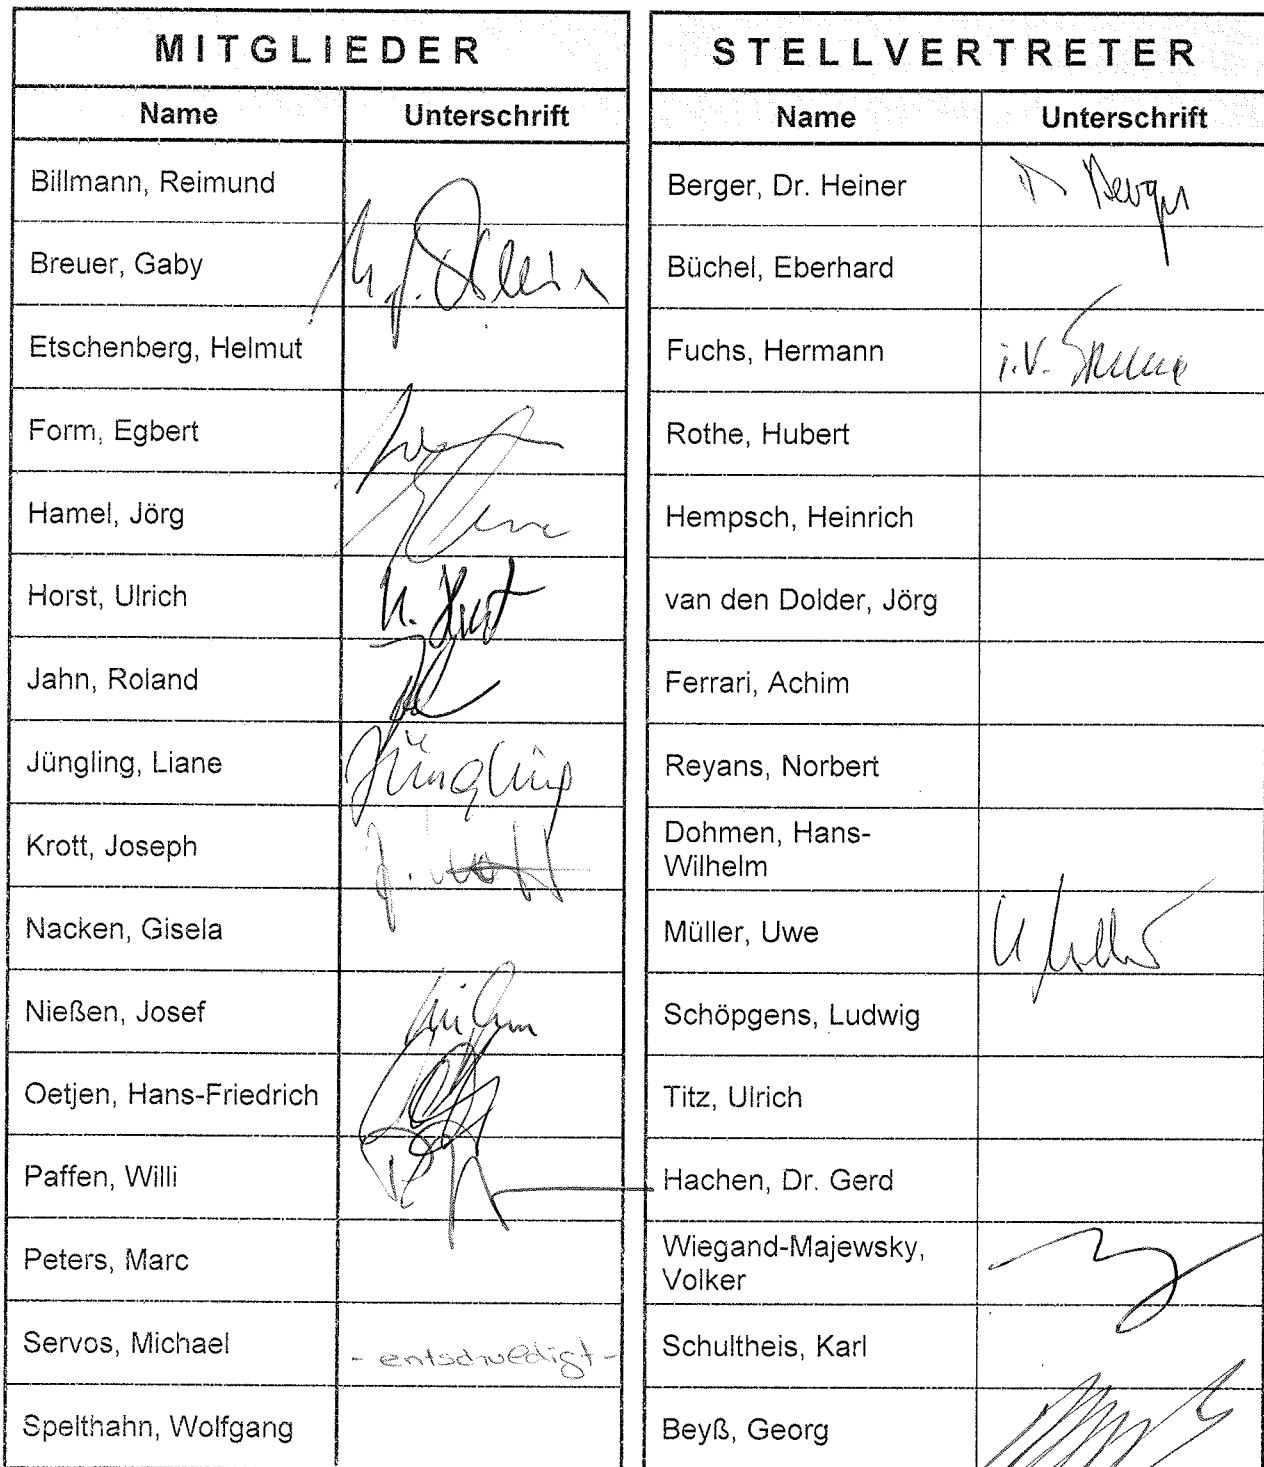 MITGLIEDER
Name Unterschrift
Billmann, Reimund
Breuer, Gaby
Etschenberg, Helmut
Form, Egbert
Hamel, Jörg
Horst, Ulrich U. Horst
Jahn, Roland
Jüngling, Liane Jüngling
Krott, Joseph J. Krott
Nacken, Gisela
Nießen, Josef
Oetjen, Hans-Friedrich
Paffen, Willi
Peters, Marc
Servos, Michael - entschuldigt -
Spelthahn, Wolfgang
STELLVERTRETER
Name Unterschrift
Berger, Dr. Heiner Berger
Büchel, Eberhard
Fuchs, Hermann i.V.
Rothe, Hubert
Hempsch, Heinrich
van den Dolder, Jörg
Ferrari, Achim
Reyans, Norbert
Dohmen, Hans-
Wilhelm
Müller, Uwe U Müller
Schöpgens, Ludwig
Titz, Ulrich
Hachen, Dr. Gerd
Wiegand-Majewsky,
Volker
Schultheis, Karl
Beyß, Georg